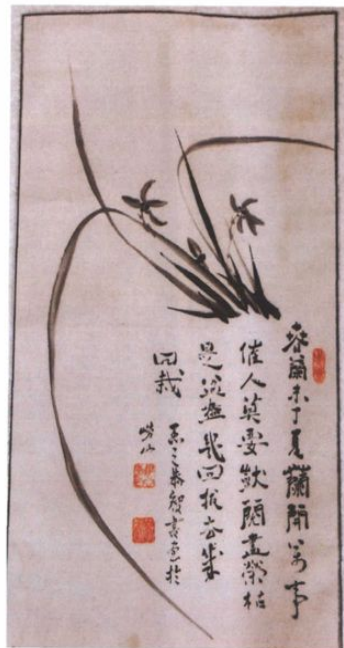 春蘭未了夏蘭開萬事
催人莫要獃閱盡榮枯
是盆盎幾回拔去幾
回栽
書畫於